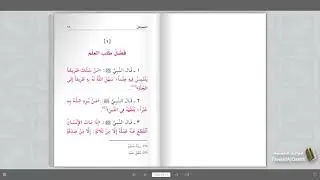 [١]
فَضْلُ طَلَبِ العِلْمِ
١ ـ قَالَ النَّبِيُّ ﷺ: «مَنْ سَلَكَ طَرِيقًا
يَلْتَمِسُ فِيهِ عِلْمًا، سَهَّلَ اللَّهُ لَهُ بِهِ طَرِيقًا إِلَى
الجَنَّةِ»
٢ ـ قَالَ النَّبِيُّ ﷺ: «مَنْ يُرِدِ اللَّهُ بِهِ
خَيْرًا، يُفَقِّهْهُ فِي الدِّينِ»
٣ ـ قَالَ النَّبِيُّ ﷺ: «إِذَا مَاتَ الإِنْسَانُ
انْقَطَعَ عَنْهُ عَمَلُهُ إِلَّا مِنْ ثَلَاثَةٍ: إِلَّا مِنْ صَدَقَةٍ